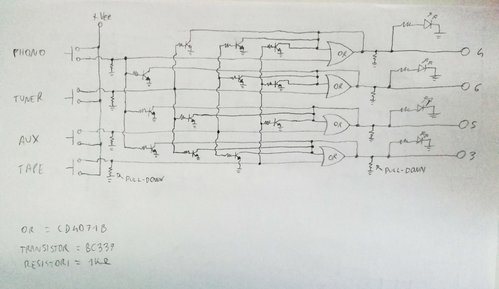 + Vcc
PHONO
OR
4
TUNER
OR
6
AUX
OR
5
TAPE
OR
3
PULL-DOWN
PULL-DOWN
OR = CD4071B
TRANSISTOR = BC337
RESISTORI = 1KΩ